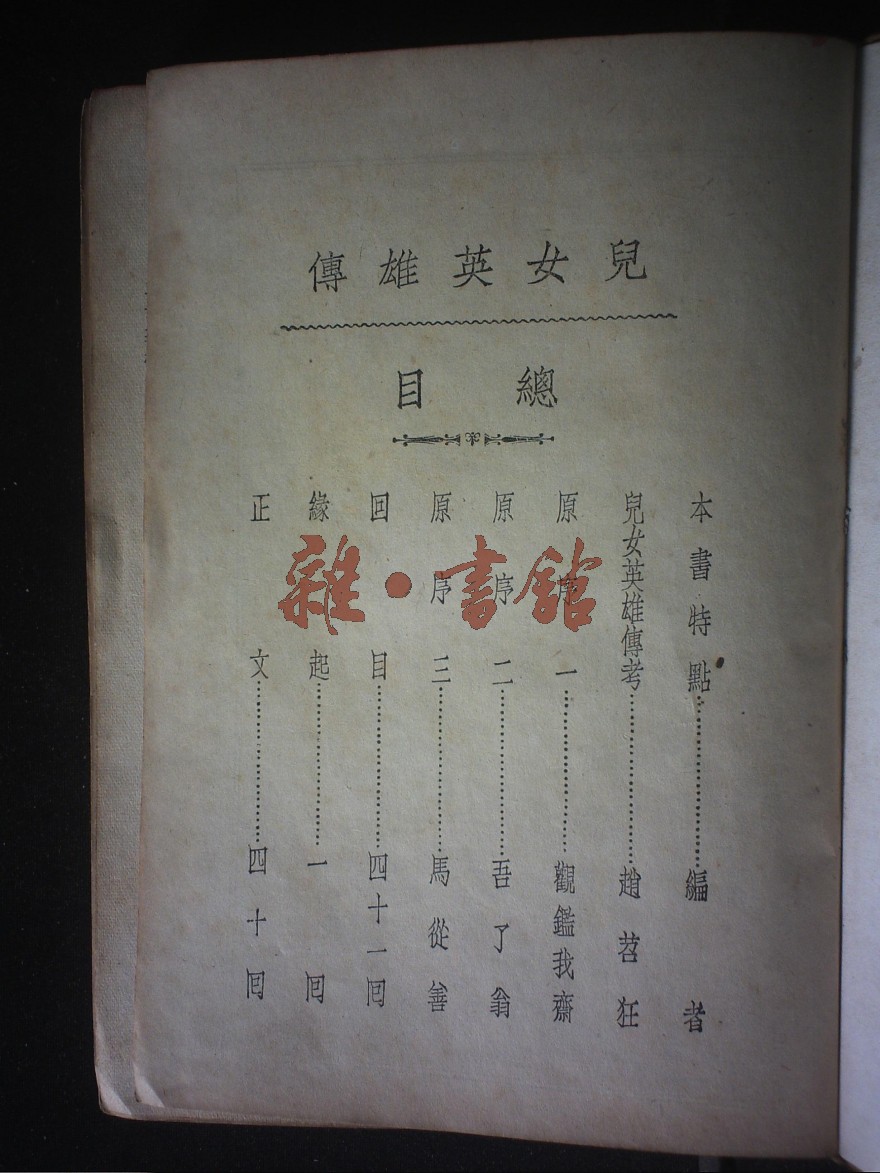 兒女英雄傳
總目
本書特點……編者
兒女英雄傳考……趙苕狂
原序一……觀鑑我齋
原序二……吾了翁
原序三……馬從善
回目……四十一囘
緣起……一囘
正文……四十囘
雜·書館